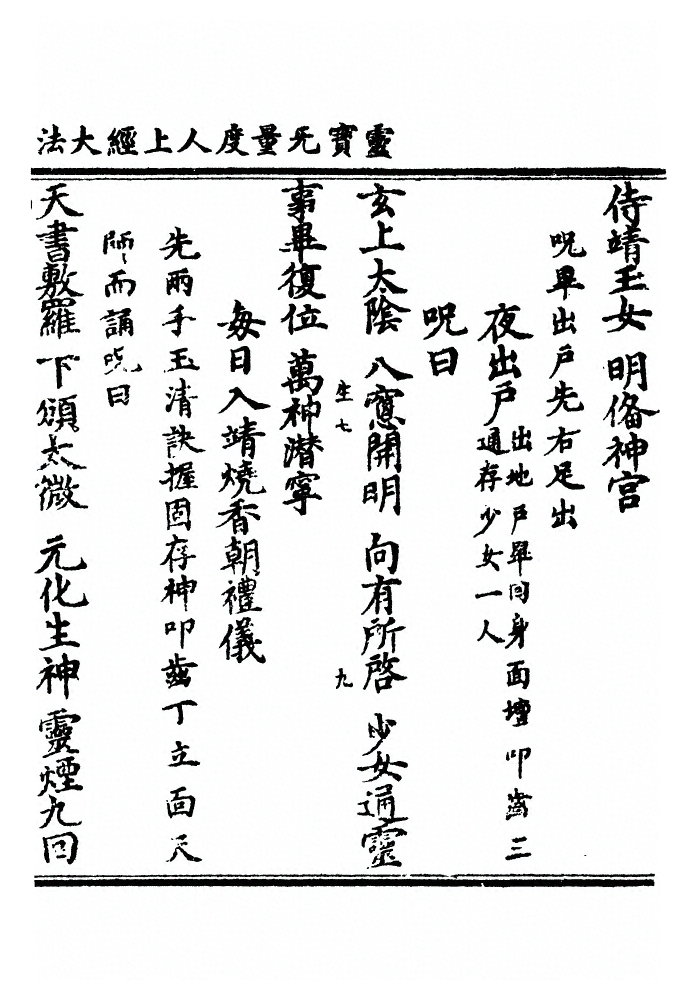 靈寶无量度人上經大法
侍靖玉女　明俻神宮
呪畢出戶先右足出
夜出戶出地戶畢囘身面壇叩齒三通存少女一人
呪曰
玄上太隂　八窻開明　向有所啓　少女通靈
生七　九
事畢復位　萬神潛寧
每日入靖燒香朝禮儀
先兩手玉清訣握固存神叩齒丁立面天
師而誦呪曰
天書敷羅　下頒太微　元化生神　靈煙九囘